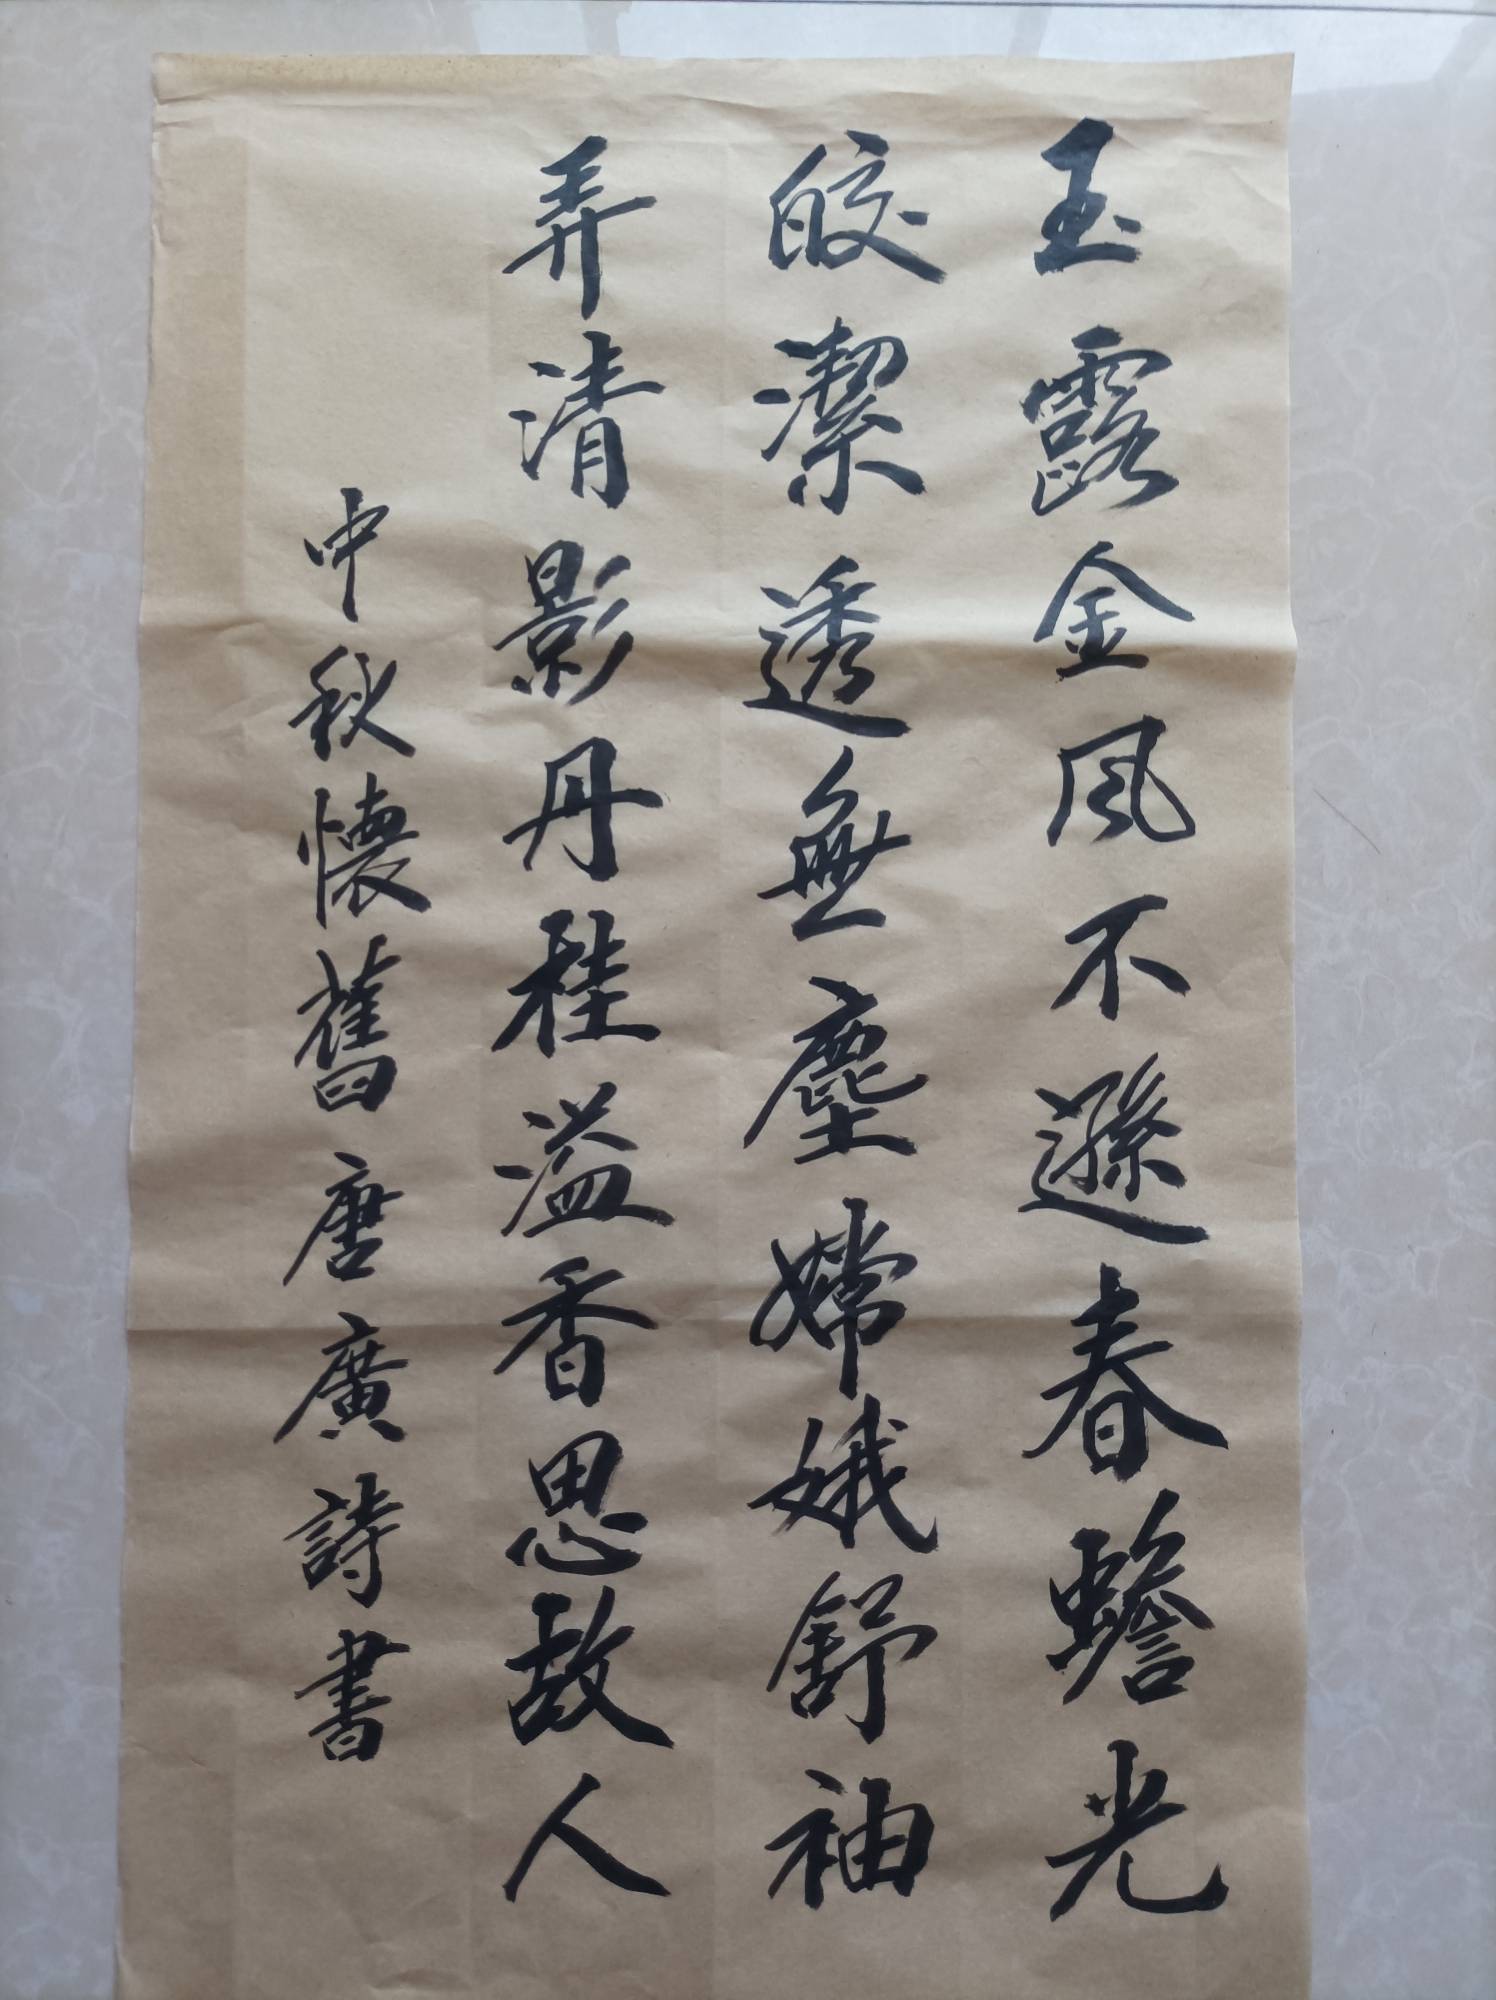 玉露金風不遜春蟾光
皎潔透無塵嫦娥舒袖
弄清影丹桂溢香思故人
中秋懷舊唐廣詩書